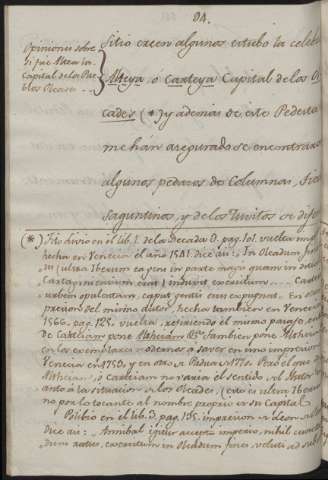 94.
Opiniones sobre
si fue Alteya la
Capital de los Pue
blos Olcades...
sitio creen algunos estubo la celebre
Alteya, ó Carteya Capital de los Ol
cades (*) y ademas de este Pedestal
me han asegurado se encontraron
algunos pedazos de Columnas,
saguntinos, y de los
(*) Tito Livio en el lib. 1. de la Decada 3. pag. 101. vuelta
hecha en Venecia el año 1581. dice asi: In Olcadum
(ultra Iberum ea gens in parte magis quam in
Carthaginensium erat) induxit exercitum
urbem opulentam, caput gentis eius expugnat. En
presion del mismo autor, hecha tambien en Venecia
1566. pag. 125. vuelta, refiriendo el mismo pasage,
de Cateliam pone Althæam. &c. Tambien pone
en los exemplares modernos a saver, en una impresion
Venecia en 1750. y en otra de Padua de 1770. Pero el que
Althæam, o Carteiam no varia el sentido del
anto a la situacion de los Olcades (esto es ultra Iberum
no por lo tocante al nombre propio de su Capital.
Polibio en el lib. 3. pag. impresion de Leon
dice asi: Annibal igitur accepto imperio, nihil
dum ratus, exercitum in Olcadum fines,